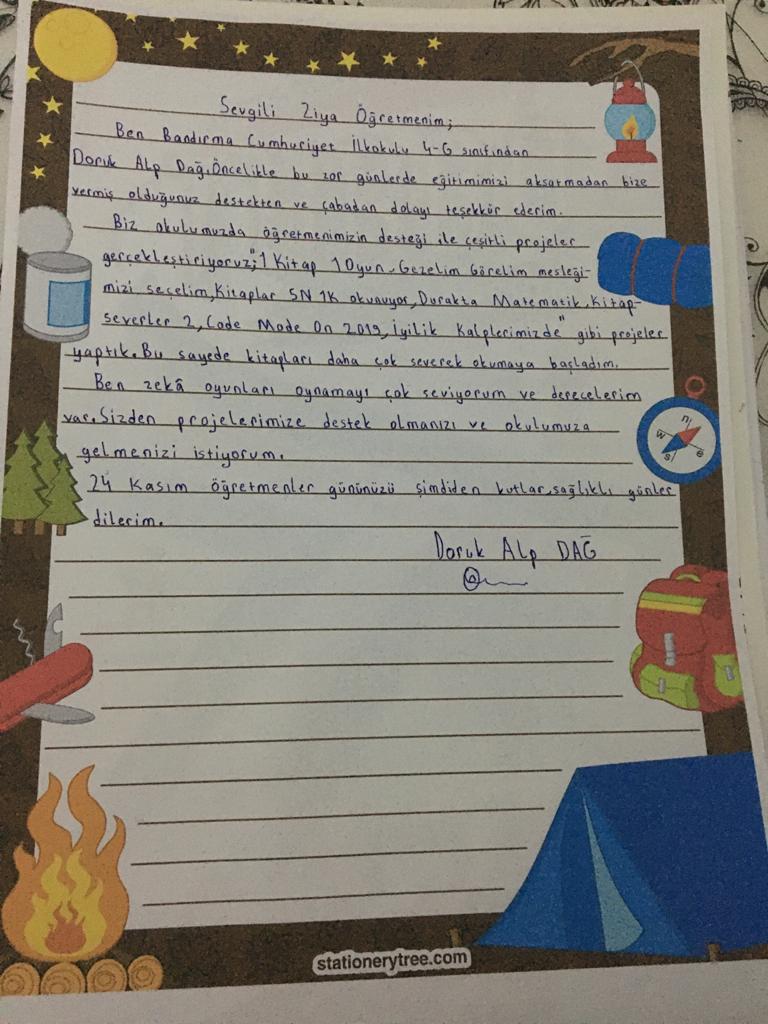 Sevgili Ziya Öğretmenim;
Ben Bandırma Cumhuriyet İlkokulu 4-G sınıfından
Doruk Alp Dağ.Öncelikle bu zor günlerde eğitimimizi aksatmadan bize
vermiş olduğunuz destekten ve çabadan dolayı teşekkür ederim.
Biz okulumuzda öğretmenimizin desteği ile çeşitli projeler
gerçekleştiriyoruz;"1 Kitap 1 Oyun, Gezelim Görelim mesleği-
mizi seçelim,Kitaplar 5N 1K okunuyor,Durakta Matematik,Kitap-
severler 2,Code Mode On 2019,İyilik Kalplerimizde" gibi projeler
yaptık.Bu sayede kitapları daha çok severek okumaya başladım.
Ben zekâ oyunları oynamayı çok seviyorum ve derecelerim
var.Sizden projelerimize destek olmanızı ve okulumuza
gelmenizi istiyorum.
24 Kasım öğretmenler gününüzü şimdiden kutlar,sağlıklı günler
dilerim.
Doruk Alp DAĞ
n
w
e
s
stationerytree.com